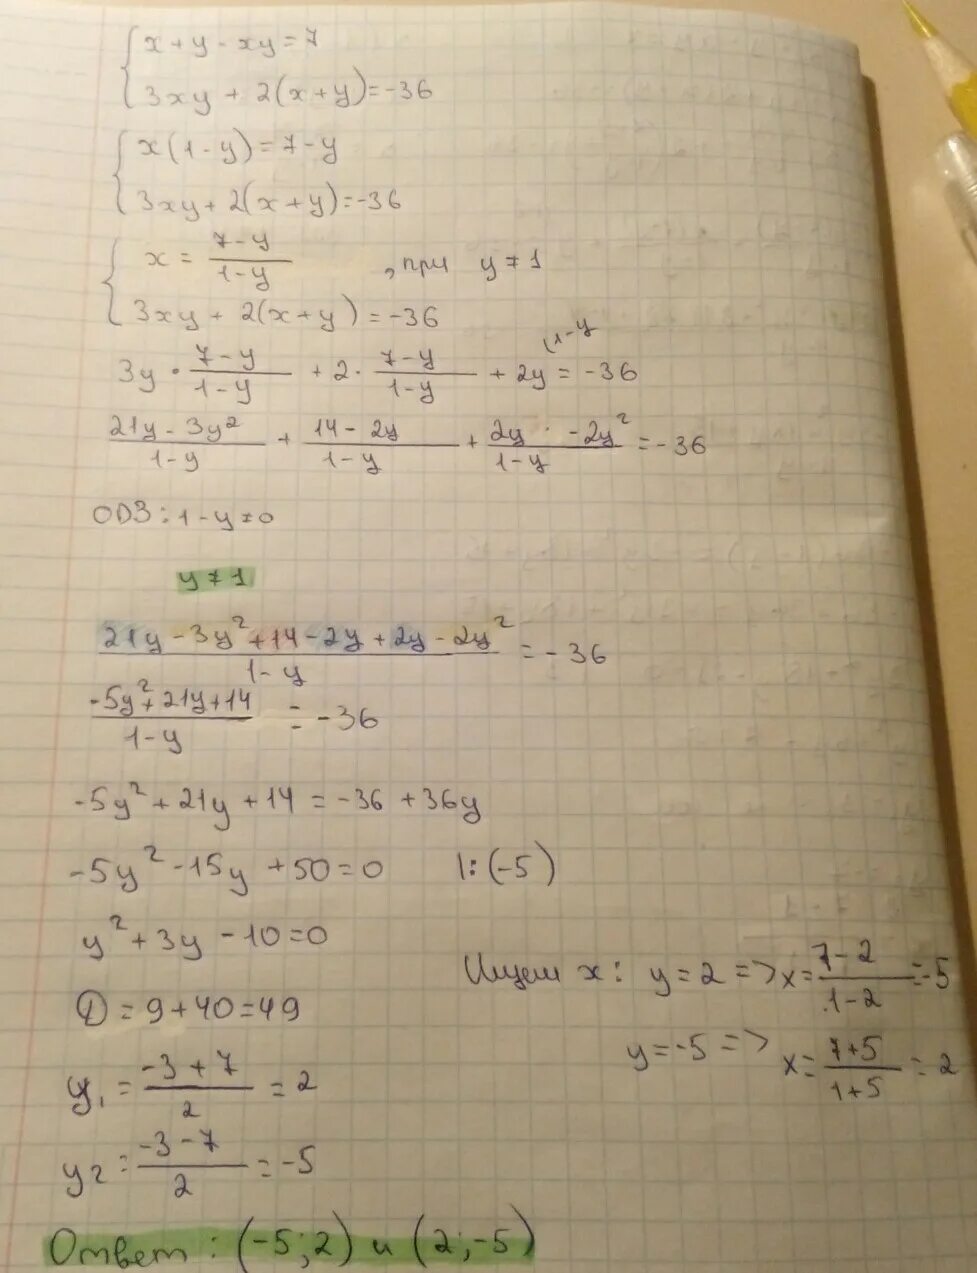 x + y - xy = 7
3xy + 2(x + y) = -36
x(1 - y) = 7 - y
3xy + 2(x + y) = -36
x = (7 - y)/(1 - y) , при y ≠ 1
3xy + 2(x + y) = -36
(1 - y
3y · (7 - y)/(1 - y) + 2 · (7 - y)/(1 - y) + 2y = -36
(21y - 3y²)/(1 - y) + (14 - 2y)/(1 - y) + (2y - 2y²)/(1 - y) = -36
ОДЗ : 1 - y ≠ 0
y ≠ 1
(21y - 3y² + 14 - 2y + 2y - 2y²)/(1 - y) = -36
(-5y² + 21y + 14)/(1 - y) = -36
-5y² + 21y + 14 = -36 + 36y
-5y² - 15y + 50 = 0 |: (-5)
y² + 3y - 10 = 0
D = 9 + 40 = 49
y₁ = (-3 + 7)/2 = 2
y₂ = (-3 - 7)/2 = -5
Ищем x : y = 2 => x = (7 - 2)/(1 - 2) = -5
y = -5 => x = (7 + 5)/(1 + 5) = 2
Ответ : (-5; 2) и (2; -5)